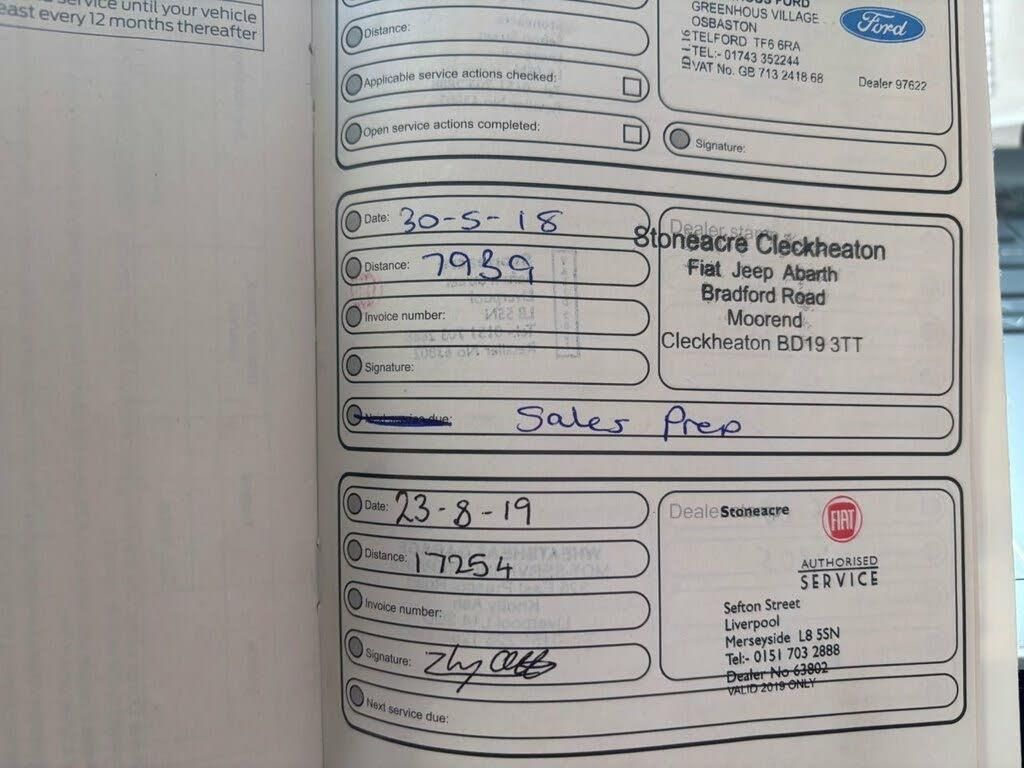 service until your vehicle
east every 12 months thereafter
Distance:
Applicable service actions checked:
Open service actions completed:
FORD
GREENHOUS VILLAGE
OSBASTON
TELFORD TF6 6RA
TEL:- 01743 352244
VAT No. GB 713 2418 68
Ford
Dealer 97622
Signature:
Date: 30-5-18
Distance: 7939
Invoice number:
Signature:
Next service due: Sales Prep
Dealer stamp
Stoneacre Cleckheaton
Fiat Jeep Abarth
Bradford Road
Moorend
Cleckheaton BD19 3TT
Date: 23-8-19
Distance: 17254
Invoice number:
Signature:
Next service due:
Stoneacre
FIAT
AUTHORISED
SERVICE
Sefton Street
Liverpool
Merseyside L8 5SN
Tel:- 0151 703 2888
Dealer No 63802
VALID 2019 ONLY